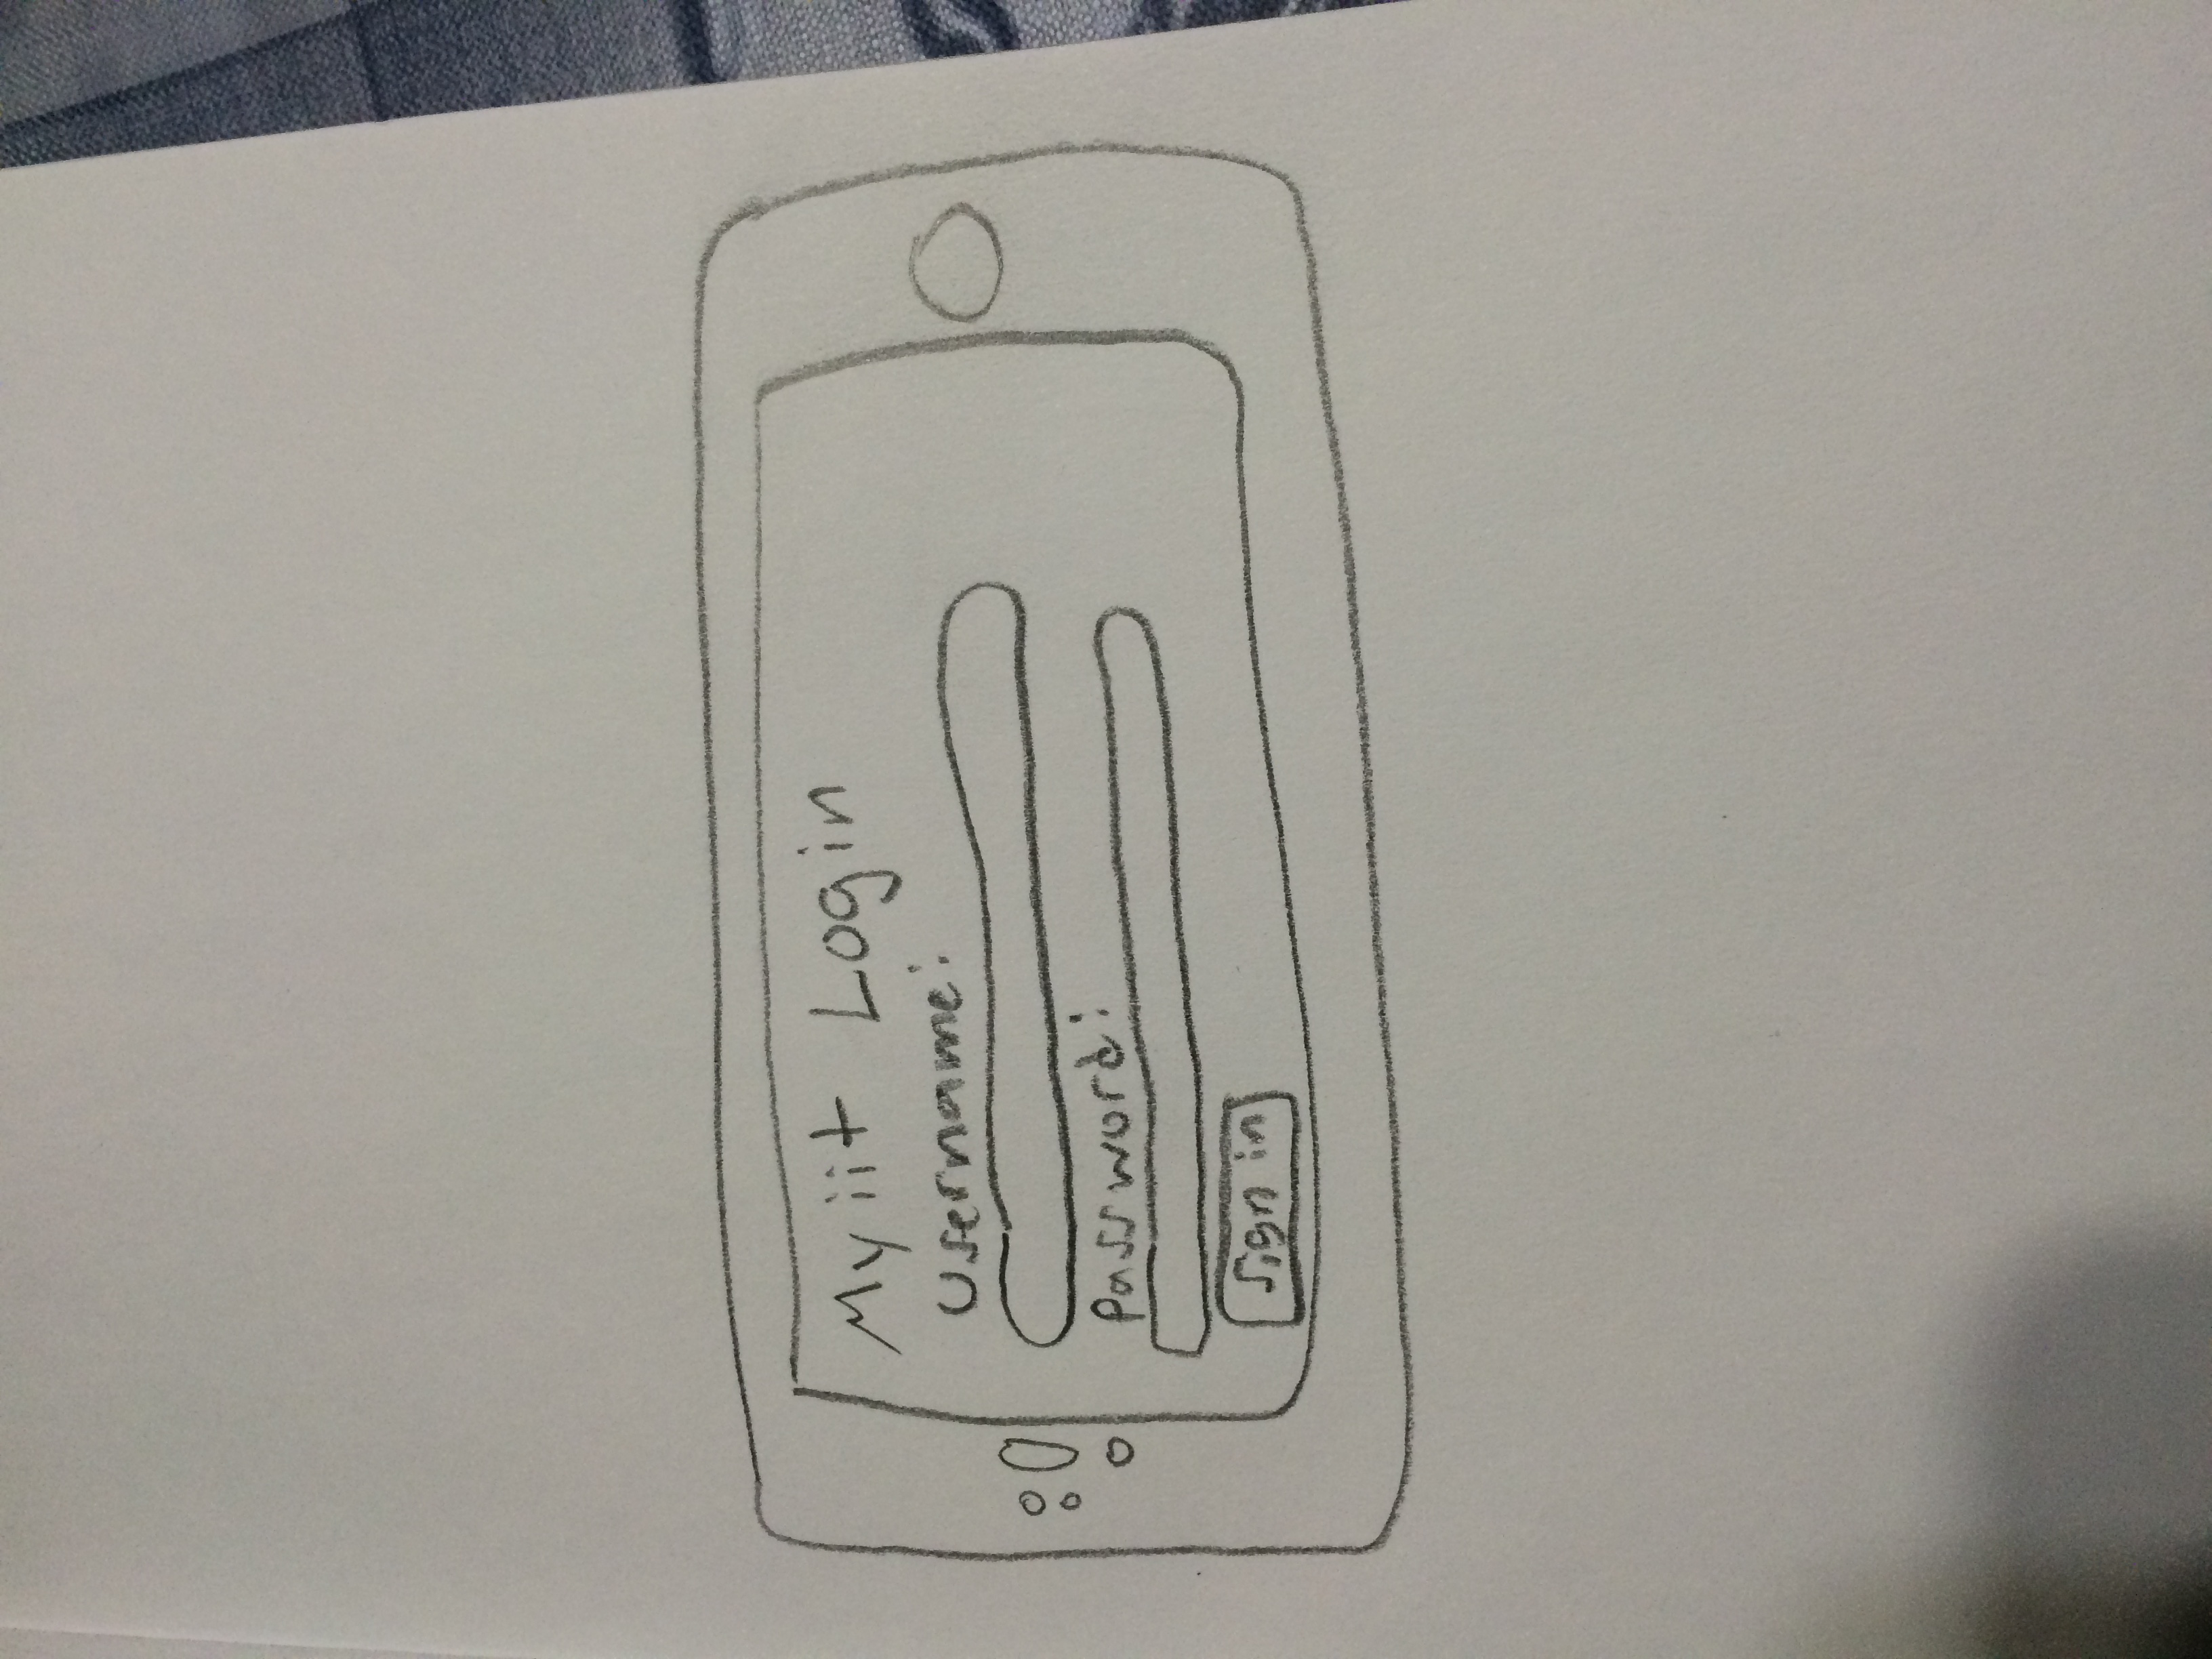 Myiit Login
Username:
Password:
Sign in